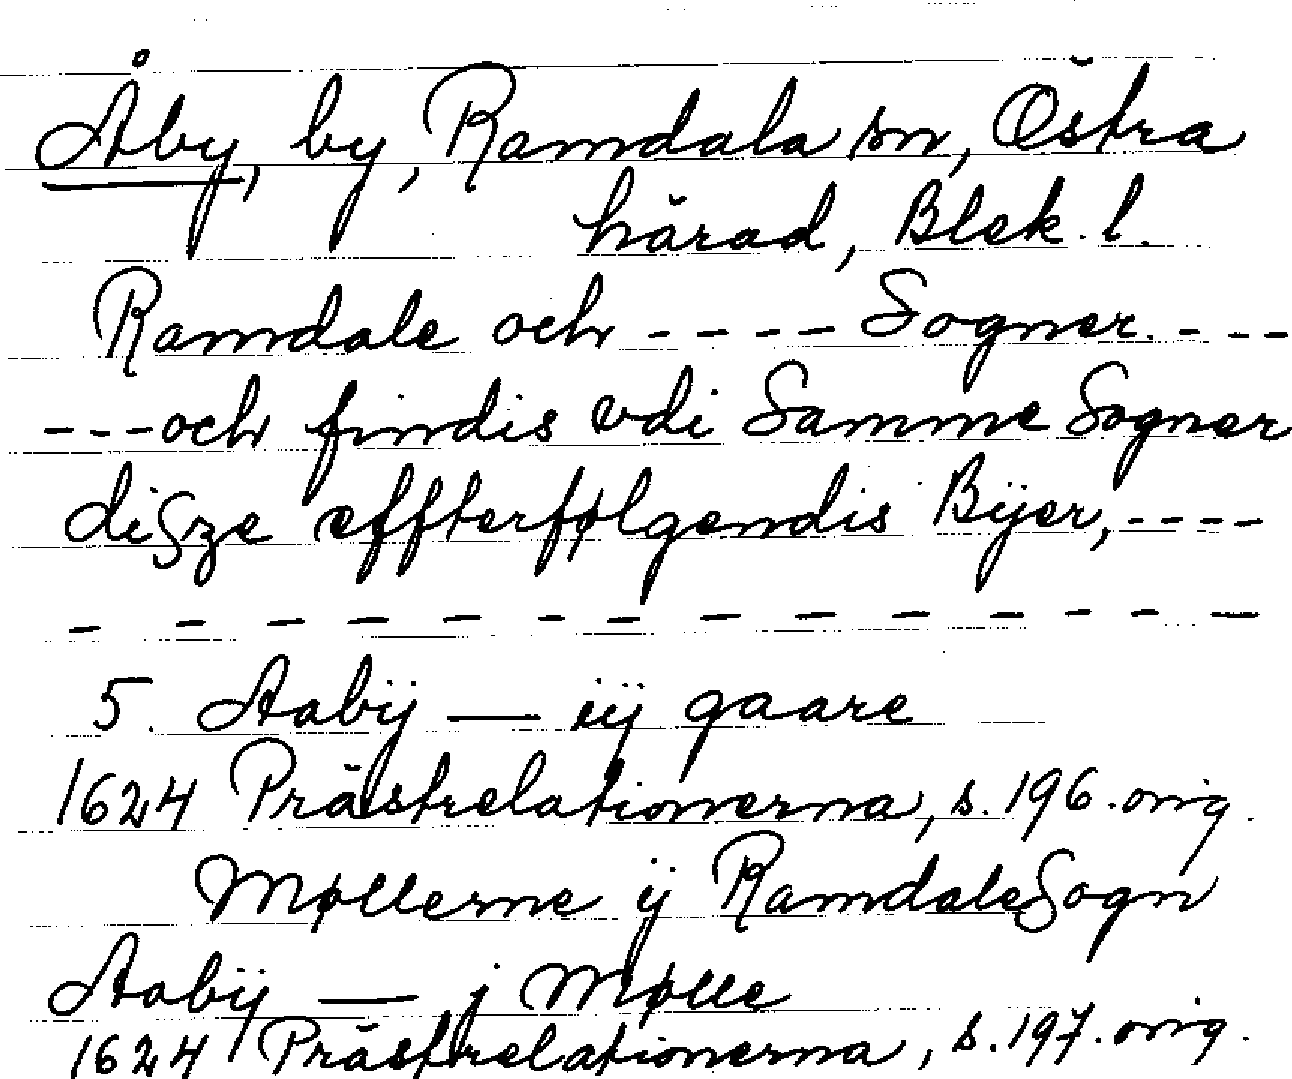 Åby, by, Ramdala sn, Östra
härad, Blek. l.
Ramdale och - - - - Sogner. - - -
- - - och findis vdi Samme Sogner
diSze effterfølgendis Bÿer, - - - -
- - - - - - - - - - - - - -
5. Aabÿ — iij gaare
1624 Prästrelationerna, s. 196. orig.
Møllerne ij Ramdale Sogn
Aabÿ — j Mølle
1624 Prästrelationerna, s. 197. orig.